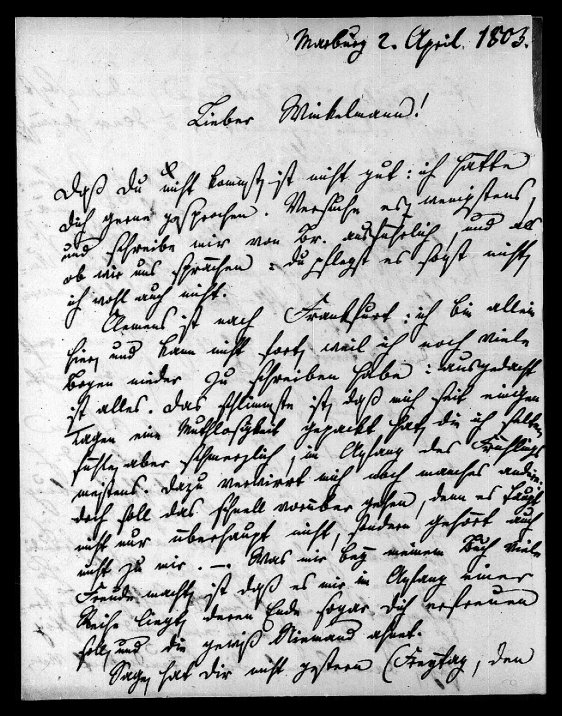 Marburg 2. April. 1803.
Lieber Winkelmann!
Daß du nicht kommst, ist nicht gut: ich hätte
dich gerne gesprochen. Versuche es wenigstens,
und schreibe mir von Br. ausführlich, und als
ob wir uns sprächen: du schlepst es sonst nicht,
ich wohl auch nicht.
Clemens ist nach Frankfurt: ich bin allein
hier, und kann nicht fort, weil ich noch viele
Bogen nieder zu schreiben habe: ausgedacht
ist alles. Das schlimmste ist, daß mich seit einigen
Tagen eine Muthlosigkeit gepackt hat, die ich selten
fühle, aber schmerzlich, im Anfang des Frühlings
meistens. dazu verwirrt mich noch manches andre:
doch soll das schnell vorüber gehen, denn es
nicht nur überhaupt nicht, sondern gehört auch
nicht zu mir. — Was mir bey meinem Buch viele
Freude macht, ist daß es mir im Anfang einer
Reihe liegt, deren Ende sogar dich erfreuen
soll, und die gewiß Niemand ahnet.
Sage, hat dir nicht gestern (Freytag, den